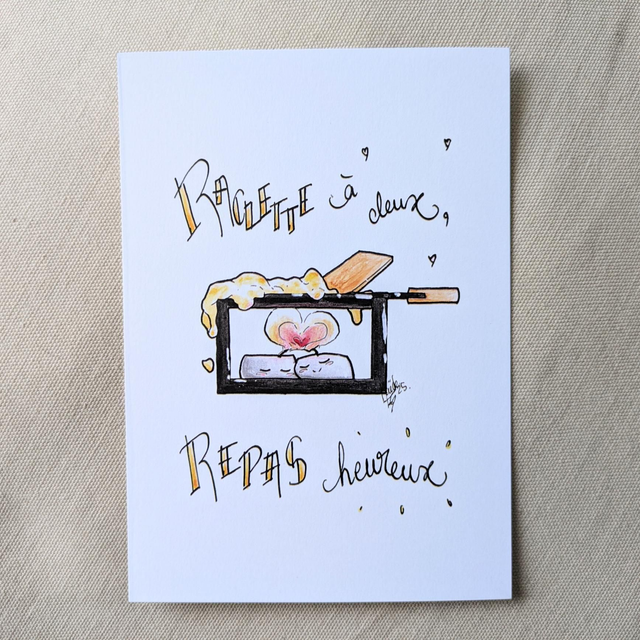 RACLETTE à deux,
REPAS heureux